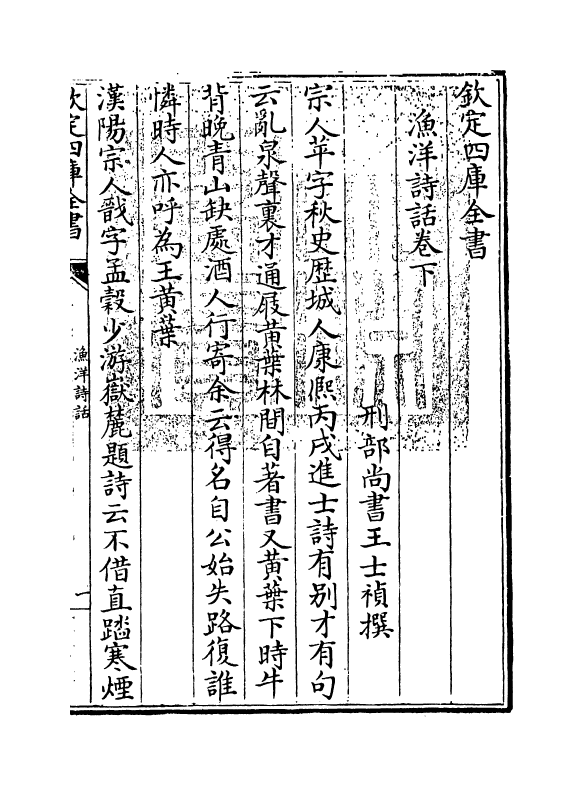 欽定四庫全書
漁洋詩話卷下
刑部尚書王士禎撰
宗人苹字秋史歴城人康熙丙戌進士詩有别才有句
云亂泉聲裏才通屐黄葉林間自著書又黄葉下時牛
背晚青山缺處酒人行寄余云得名自公始失路復誰
憐時人亦呼為王黄葉
漢陽宗人戩字孟穀少游嶽麓題詩云不借直踏寒煙
欽定四庫全書
漁洋詩話
一